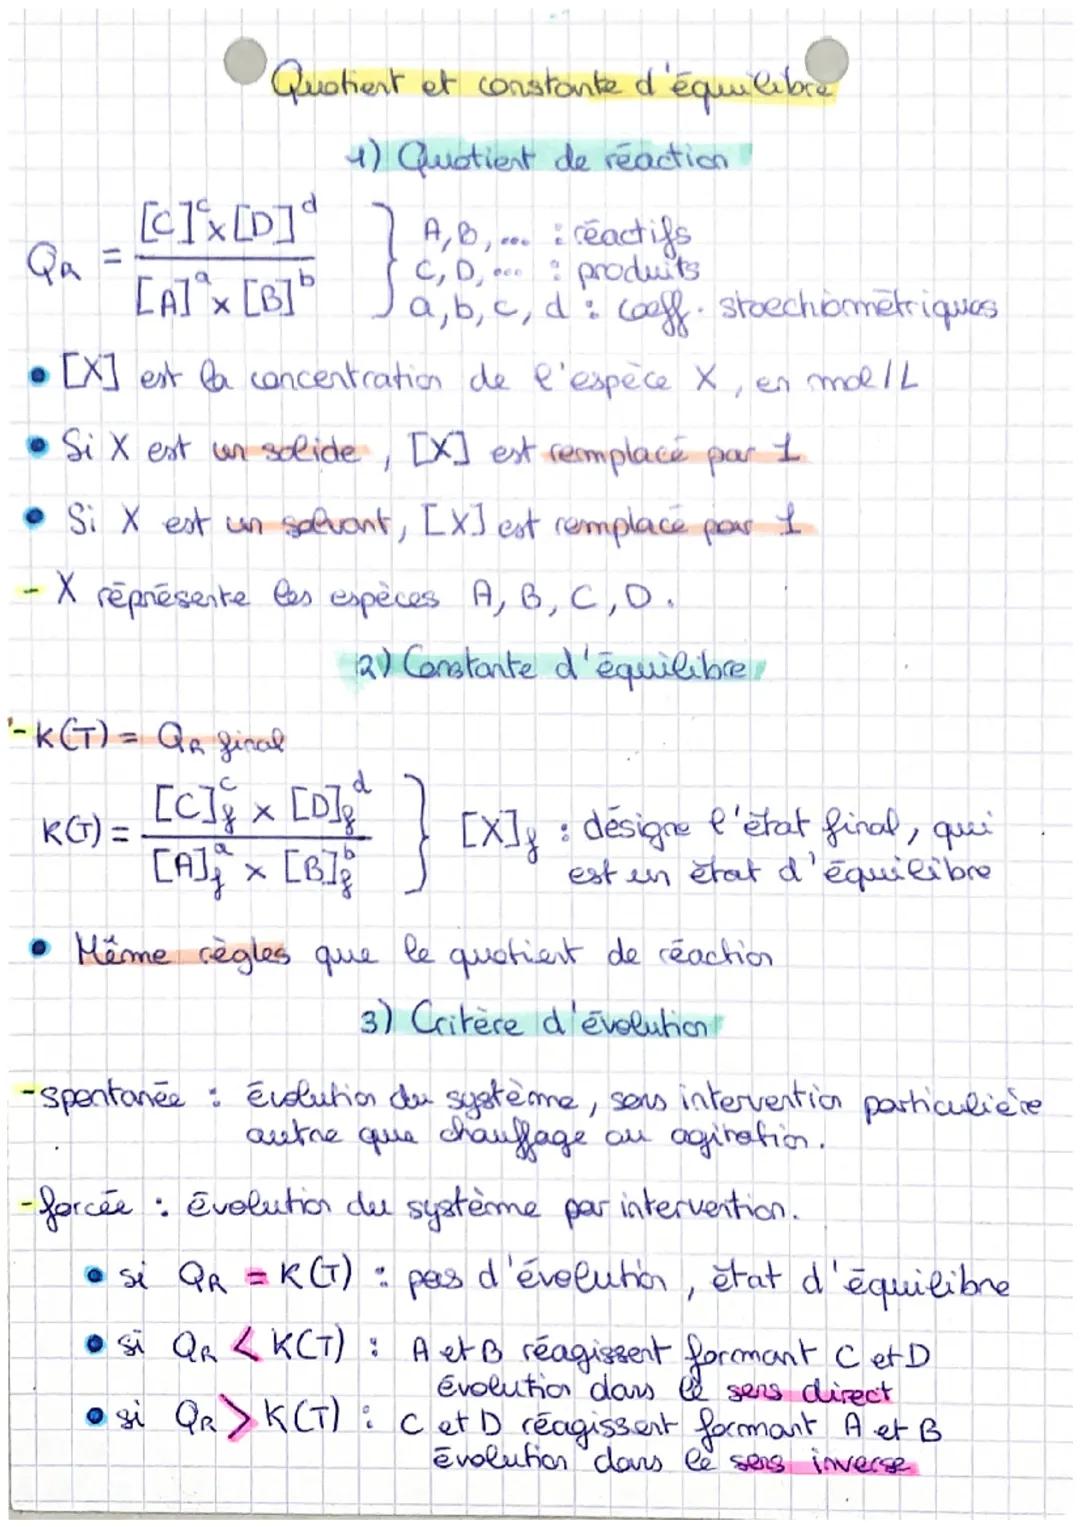 Quotient et constante d'équilibre
1) Quotient de réaction
Q_R = \frac{[C]^c × [D]^d}{[A]^a × [B]^b} } A, B, ... : réactifs
C, D, ... : produits
a, b, c, d : coeff. stoechiométriques
• [X] est la concentration de l'espèce X, en mol/L
• Si X est un solide, [X] est remplacé par 1
• Si X est un solvant, [X] est remplacé par 1
- X réprésente les espèces A, B, C, D.
2) Constante d'équilibre
- K(T) = Q_R final
K(T) = \frac{[C]_f^c × [D]_f^d}{[A]_f^a × [B]_f^b} } [X]_f : désigne l'état final, qui
est un état d'équilibre
• Même règles que le quotient de réaction
3) Critère d'évolution
- spontanée : évolution du système, sans intervention particulière
autre que chauffage ou agitation.
- forcée : évolution du système par intervention.
• si Q_R = K(T) : pas d'évolution, état d'équilibre
• si Q_R < K(T) : A et B réagissent formant C et D
évolution dans le sens direct
• si Q_R > K(T) : C et D réagissent formant A et B
évolution dans le sens inverse